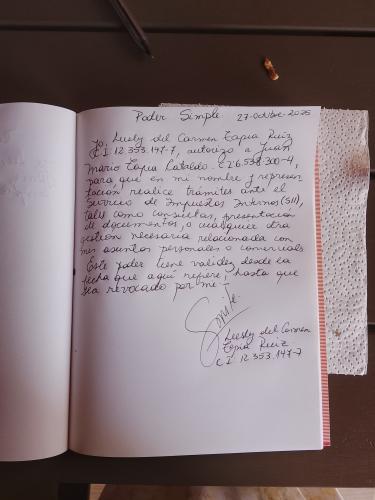 Poder Simple. 27-octubre-2025
Yo, Leesly del Carmen Tapia Ruiz
C I 12.353.147-7, autorizo a Juan
Mario Tapia Cataldo. C.I 6.538.300-4,
para que en mi nombre y represen
tación realice trámites ante el
Servicio de Impuestos Internos (SII),
tales como consultas, presentación
de documentos, o cualquier otra
gestión necesaria relacionada con
mis asuntos personales o comerciales
Este poder tiene validez desde la
fecha que aquí refiere, hasta que
sea revocado por mi -
Leesly del Carmen
Tapia Ruiz
C I 12.353.147-7